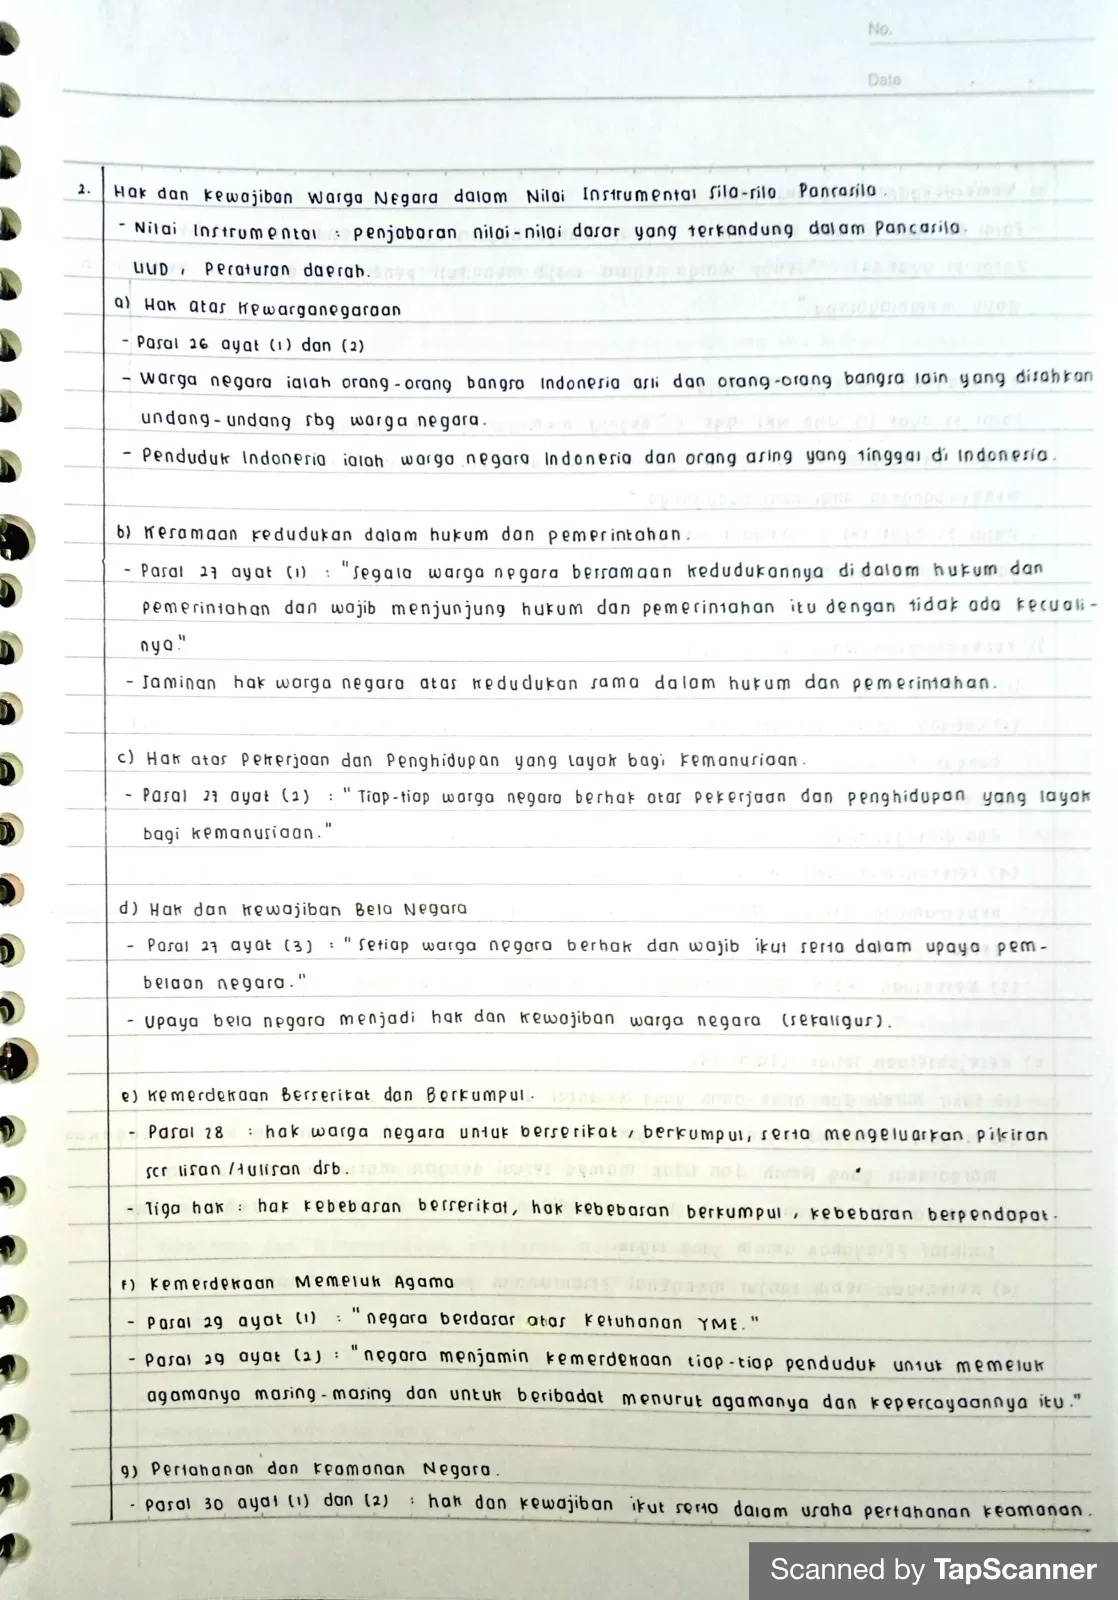 No.
Date
2. Hak dan Kewajiban Warga Negara dalam Nilai Instrumental Sila-sila Pancasila.
- Nilai Instrumental : penjabaran nilai-nilai dasar yang terkandung dalam Pancasila.
UUD, Peraturan daerah.
a) Hak atas Kewarganegaraan
- Pasal 26 ayat (1) dan (2)
- Warga negara ialah orang-orang bangsa Indonesia asli dan orang-orang bangsa lain yang disahkan
undang-undang sbg warga negara.
- Penduduk Indonesia ialah warga negara Indonesia dan orang asing yang tinggal di Indonesia.
b) Kesamaan kedudukan dalam hukum dan pemerintahan.
- Pasal 27 ayat (1) : "Segala warga negara bersamaan kedudukannya didalam hukum dan
pemerintahan dan wajib menjunjung hukum dan pemerintahan itu dengan tidak ada kecuali-
nya."
- Jaminan hak warga negara atas kedudukan sama dalam hukum dan pemerintahan.
c) Hak atas Pekerjaan dan Penghidupan yang layak bagi kemanusiaan.
- Pasal 27 ayat (2) : "Tiap-tiap warga negara berhak atas pekerjaan dan penghidupan yang layak
bagi kemanusiaan."
d) Hak dan Kewajiban Bela Negara
- Pasal 27 ayat (3) : "Setiap warga negara berhak dan wajib ikut serta dalam upaya pem-
belaan negara."
- Upaya bela negara menjadi hak dan kewajiban warga negara (sekaligus).
e) Kemerdekaan Berserikat dan Berkumpul.
- Pasal 28 : hak warga negara untuk berserikat, berkumpul, serta mengeluarkan pikiran
scr lisan/tulisan dsb.
- Tiga hak : hak kebebasan berserikat, hak kebebasan berkumpul, kebebasan berpendapat.
f) Kemerdekaan Memeluk Agama
- Pasal 29 ayat (1) : "negara berdasar atas Ketuhanan YME."
- Pasal 29 ayat (2) : "negara menjamin kemerdekaan tiap-tiap penduduk untuk memeluk
agamanya masing-masing dan untuk beribadat menurut agamanya dan kepercayaannya itu."
g) Pertahanan dan Keamanan Negara.
- Pasal 30 ayat (1) dan (2) : hak dan kewajiban ikut serta dalam usaha pertahanan keamanan.
Scanned by TapScanner